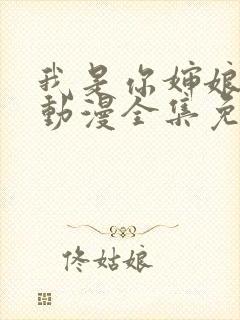 我是你婶娘
動漫全集免
佟姑娘